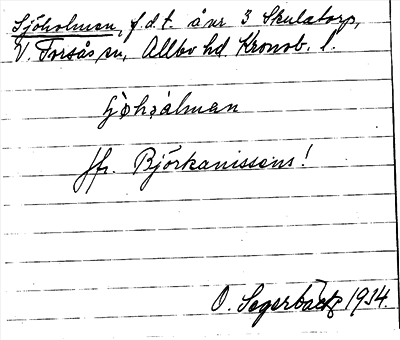 Sjöholmen, f.d.t. å nr 3 Skulatorp,
V. Torsås sn, Allbo hd Kronob. l.
jfr. Björkanissens!
O. Segerbäck 1934.